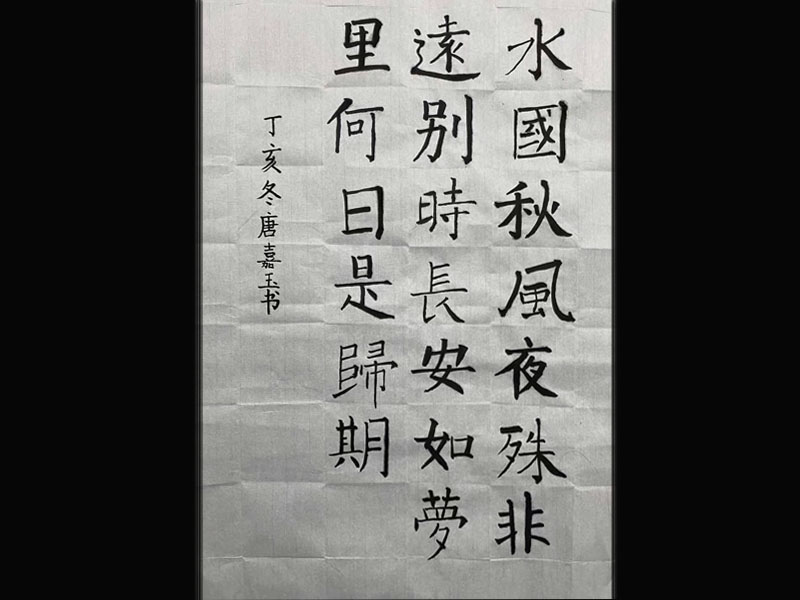 水國秋風夜殊非
遠别時長安如夢
里何日是歸期
丁亥冬唐嘉玉书